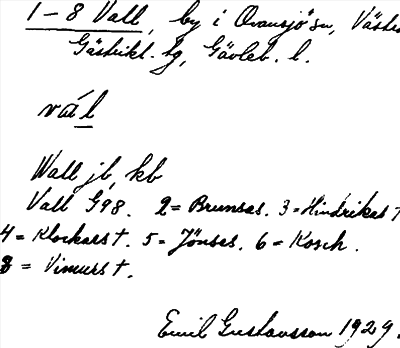 1-8 Vall, by i Ovansjö sn, Västra
Gästrikl. tg, Gävleb. l.
vál
Wall jb, kb
Vall G98. 2 = Brunsas. 3 = Hindrikas †
4 = Klockars †. 5 = Jönsas. 6 = Kosch.
8 = Vimurs †.
Emil Gustavsson 1929.